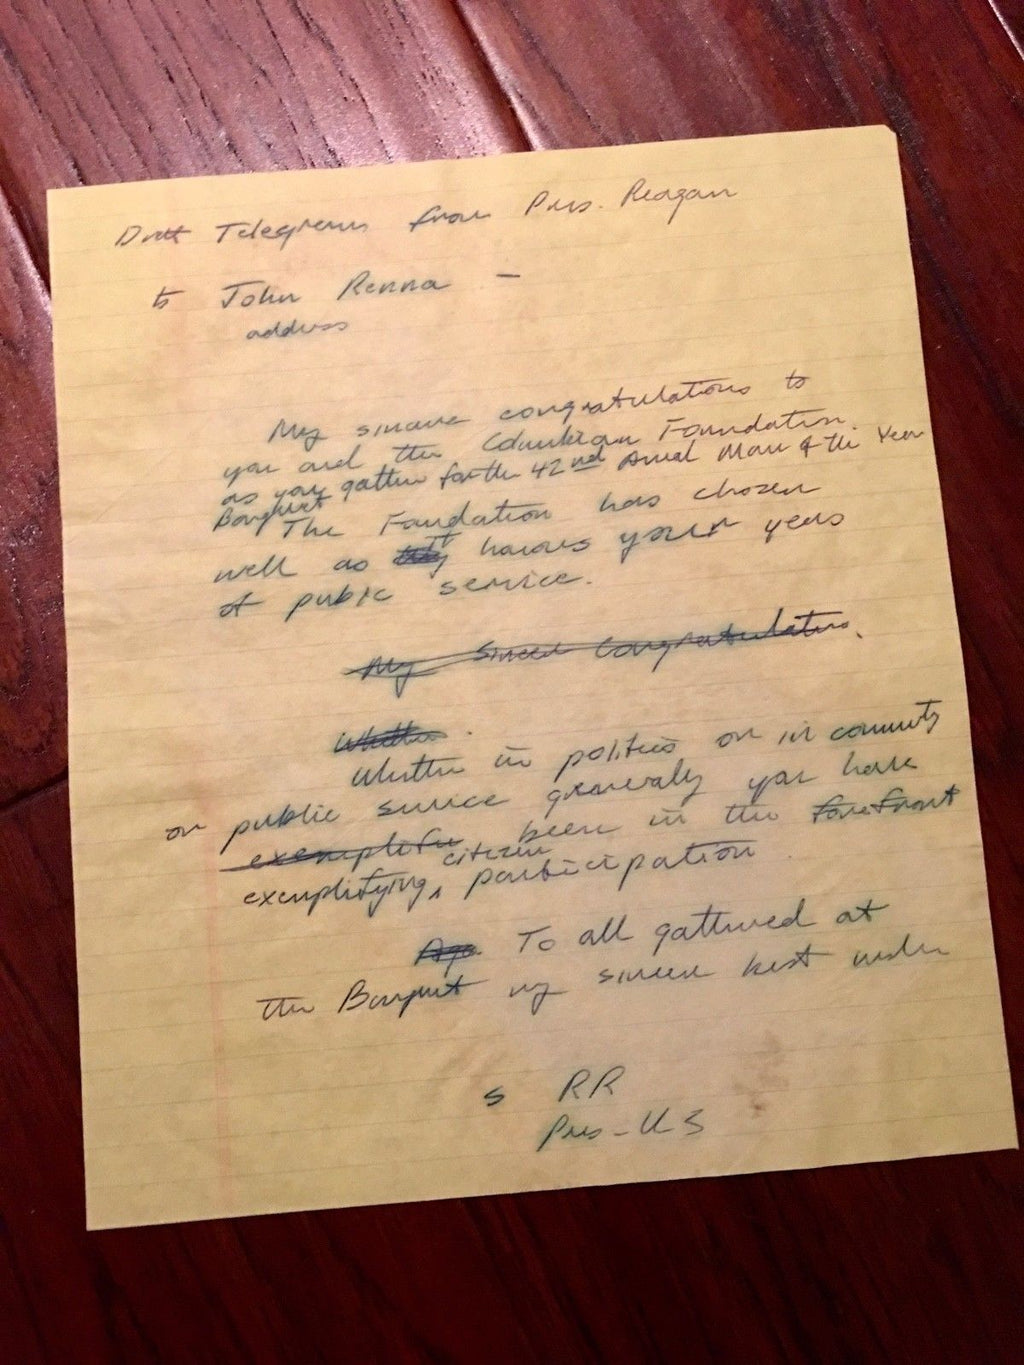 Draft Telegram from Pres. Reagan
to John Renna -
address
My sincere congratulations to
you and the Columbian Foundation.
as you gather for the 42nd Annual Man of the Year
Banquet
The Foundation has chosen
well as it honors your years
of public service.
My sincere congratulations.
Whether.
Whether in politics or in community
or public service generally you have
exemplified been in the forefront
citizen
exemplifying participation.
To all gathered at
the Banquet my sincere best wishes
s RR
Pres - US